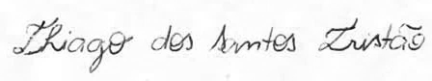 Thiago dos santos Tristão